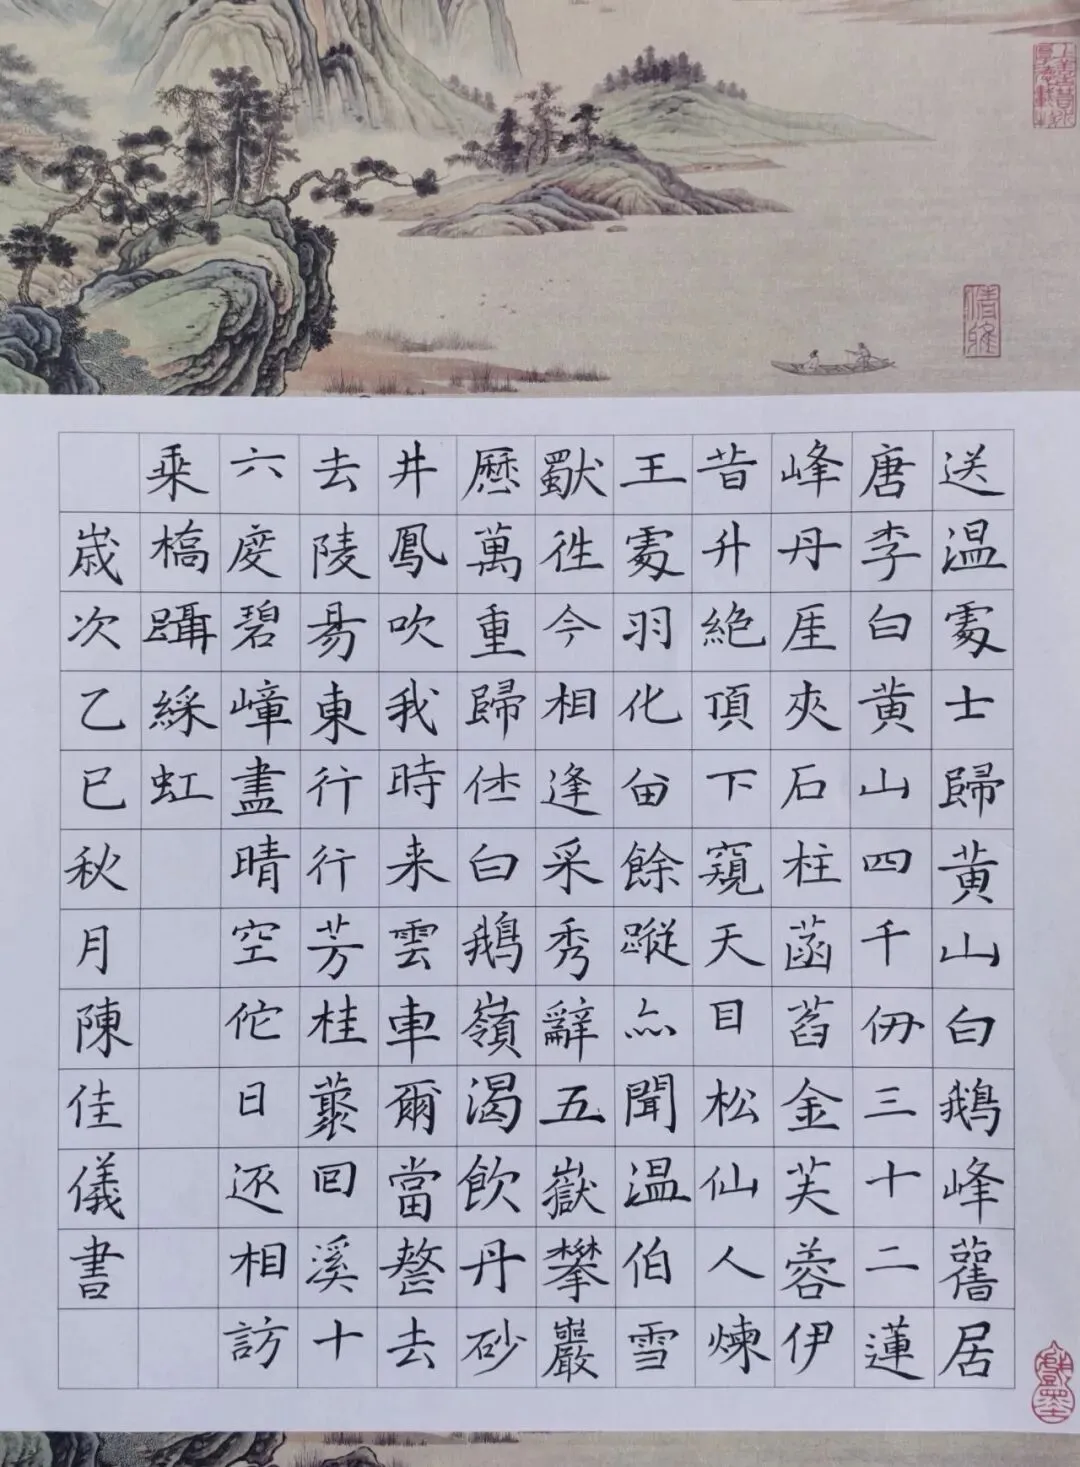 送温處士歸黄山白鵝峰舊居
唐李白黄山四千仞三十二蓮
峰丹厓夾石柱菡萏金芙蓉伊
昔升絶頂下窺天目松仙人煉
王處羽化留餘蹤亦聞温伯雪
獨往今相逢采秀辭五嶽攀巖
歷萬重歸休白鵝嶺渴飲丹砂
井鳳吹我時来雲車爾當整去
去陵昜東行行芳桂叢回溪十
六度碧嶂盡晴空佗日还相訪
乘橋躡綵虹
歲次乙巳秋月陳佳儀書
上善若水
厚德載物
清雅